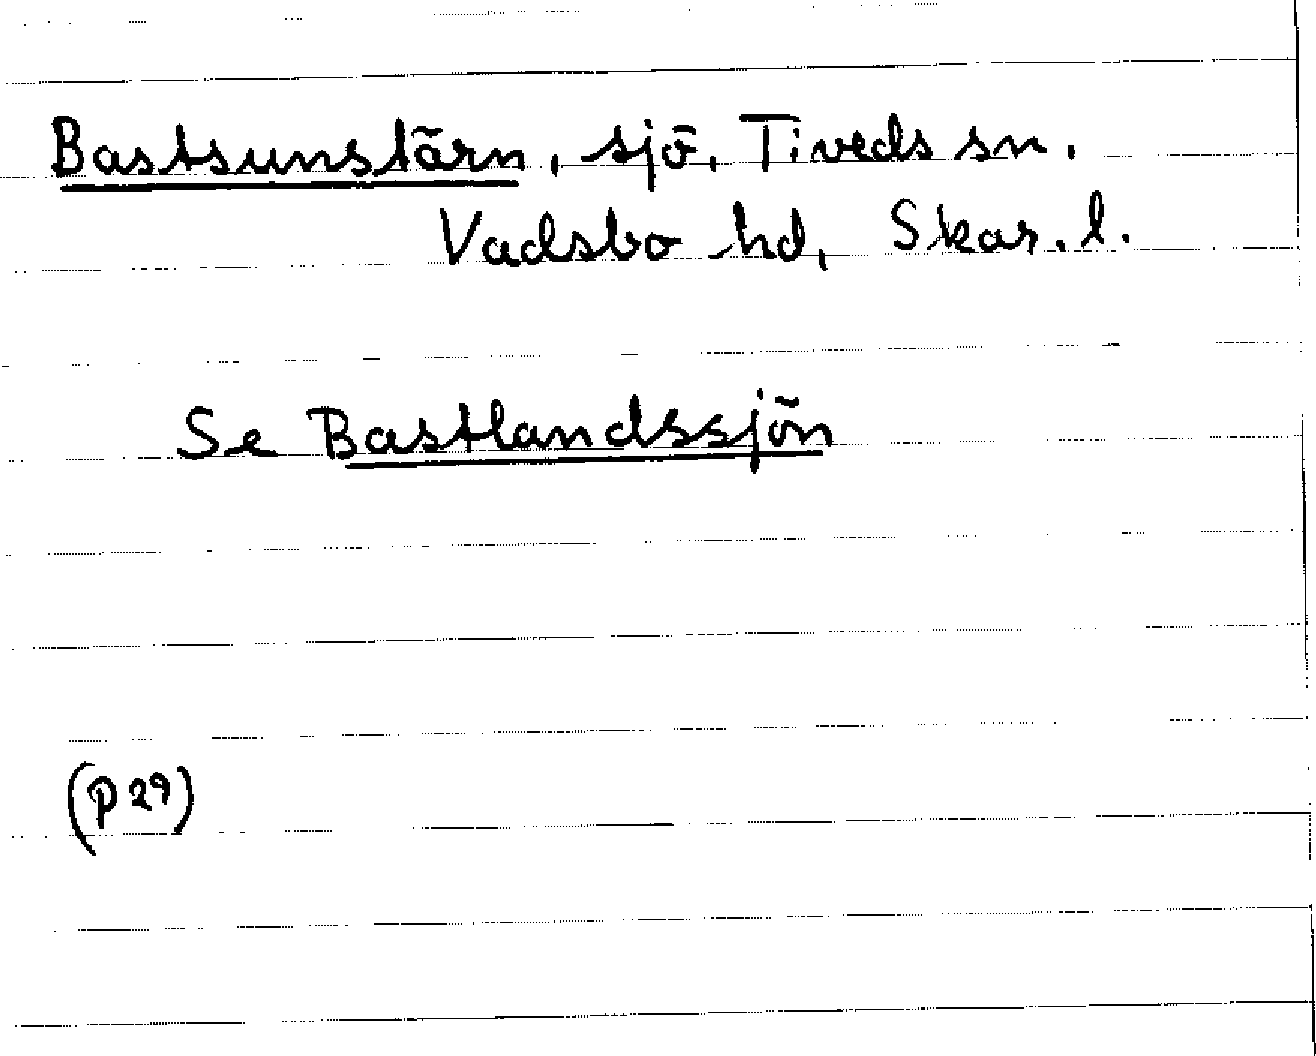 Bastsunstärn, sjö, Tiveds sn.
Vadsbo hd, Skar. l.
Se Bastlandssjön
(P 29)